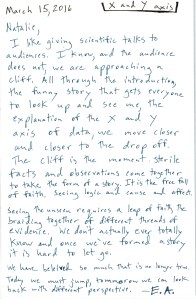 March 15, 2016
X and Y axis
Natalie,
I like giving scientific talks to
audiences. I know, and the audience
does not we are approaching a
cliff. All through the introduction,
the funny story that gets everyone
to look up and see me, the
explanation of the X and Y
axis of data, we move closer
and closer to the drop off.
The cliff is the moment sterile
facts and observations come together
to take the form of a story. It is the free fall
of faith, seeing logic and cause and affect.
Seeing the unseen requires a leap of faith, the
braiding together of different threads of
evidence. We don't actually ever totally
know and once we've formed a story
it is hard to let go.
We have believed so much that is no longer true.
Today we must jump, tomorrow we can look
back with different perspective. E.A.